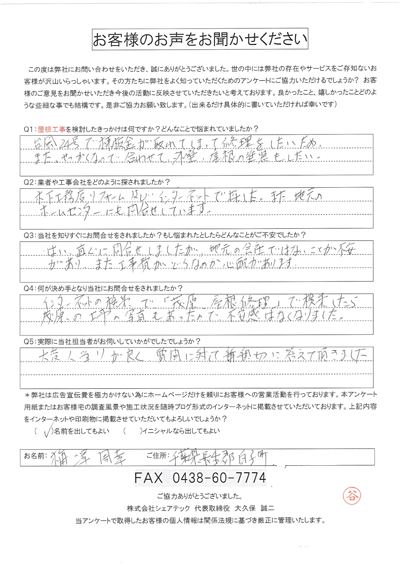 お客様のお声をお聞かせください
この度は弊社にお問い合わせをいただき、誠にありがとうございました。世の中には弊社の存在やサービスをご存知ないお
客様が沢山いらっしゃいます。その方たちに弊社をよく知っていただくためのアンケートにご協力いただけるでしょうか? お客
様のご意見をお聞かせいただき今後の活動に反映させていただきたいと考えております。良かったこと、嬉しかったことどのよ
うな些細な事でも結構です。是非ご協力お願い致します。(出来るだけ具体的に書いていただければ幸いです)
Q1:屋根工事を検討したきっかけは何ですか?どんなことで悩まれていましたか?
台風24号で棟板金が取れてしまって修理をしたいため
また、せっかくなので合わせて、外壁、屋根の塗装もしたい。
Q2:業者や工事会社をどのように探されましたか?
木下工務店リフォーム及びインターネットで探した。また地元の
ホームセンターにも問合せしています。
Q3:当社を知りすぐにお問合せをされましたか?もし悩まれたとしたらどんなことがご不安でしたか?
はい、直ぐに問合せしましたが、地元の会社ではないことが不安
があり、また工事費がどうなのか心配があります。
Q4:何が決め手となり当社にお問合せをされましたか?
インターネットの検索で「茂原 屋根修理」で検索したら
茂原の工事の写真もあったので不安感はなくなりました。
Q5:実際に当社担当者がお伺いしていかがでしたでしょうか?
大変人当りが良く質問に対して親切に答えて頂きました
*弊社は広告宣伝費を極力かけない為にホームページだけを頼りにお客様への営業活動を行っております。本アンケート
用紙またはお客様宅の調査風景や施工状況を随時ブログ形式のインターネットに掲載させていただいております。上記内容
をインターネットや印刷物に掲載させていただいてもよろしいでしょうか?
(✓)名前を出してもよい ( )イニシャルなら出してもよい
お名前: ご住所: 千葉県長生郡白子町
FAX 0438-60-7774
ご協力ありがとうございました。
株式会社シェアテック 代表取締役 大久保 誠二
当アンケートで取得したお客様の個人情報は関係法規に基づき厳正に管理いたします。
谷